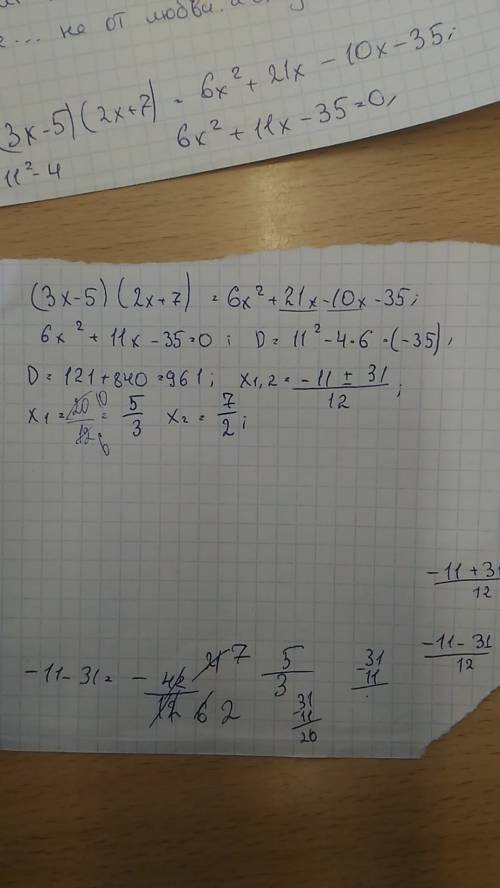 не от любви.
(3x-5)(2x+7) = 6x² + 21x - 10x - 35;
6x² + 11x - 35 = 0,
11² - 4
(3x-5)(2x+7) = 6x² + 21x - 10x - 35;
6x² + 11x - 35 = 0; D = 11² - 4·6·(-35),
D = 121 + 840 = 961; x1,2 = -11 ± 31 / 12;
x1 = 20 10 / 12 6 = 5/3 x2 = 7/2;
-11 + 31 / 12
-11 - 31 / 12
-11 - 31 = - 42 21 7 / 12 6 2
5/3
31
-11
20
31
-11